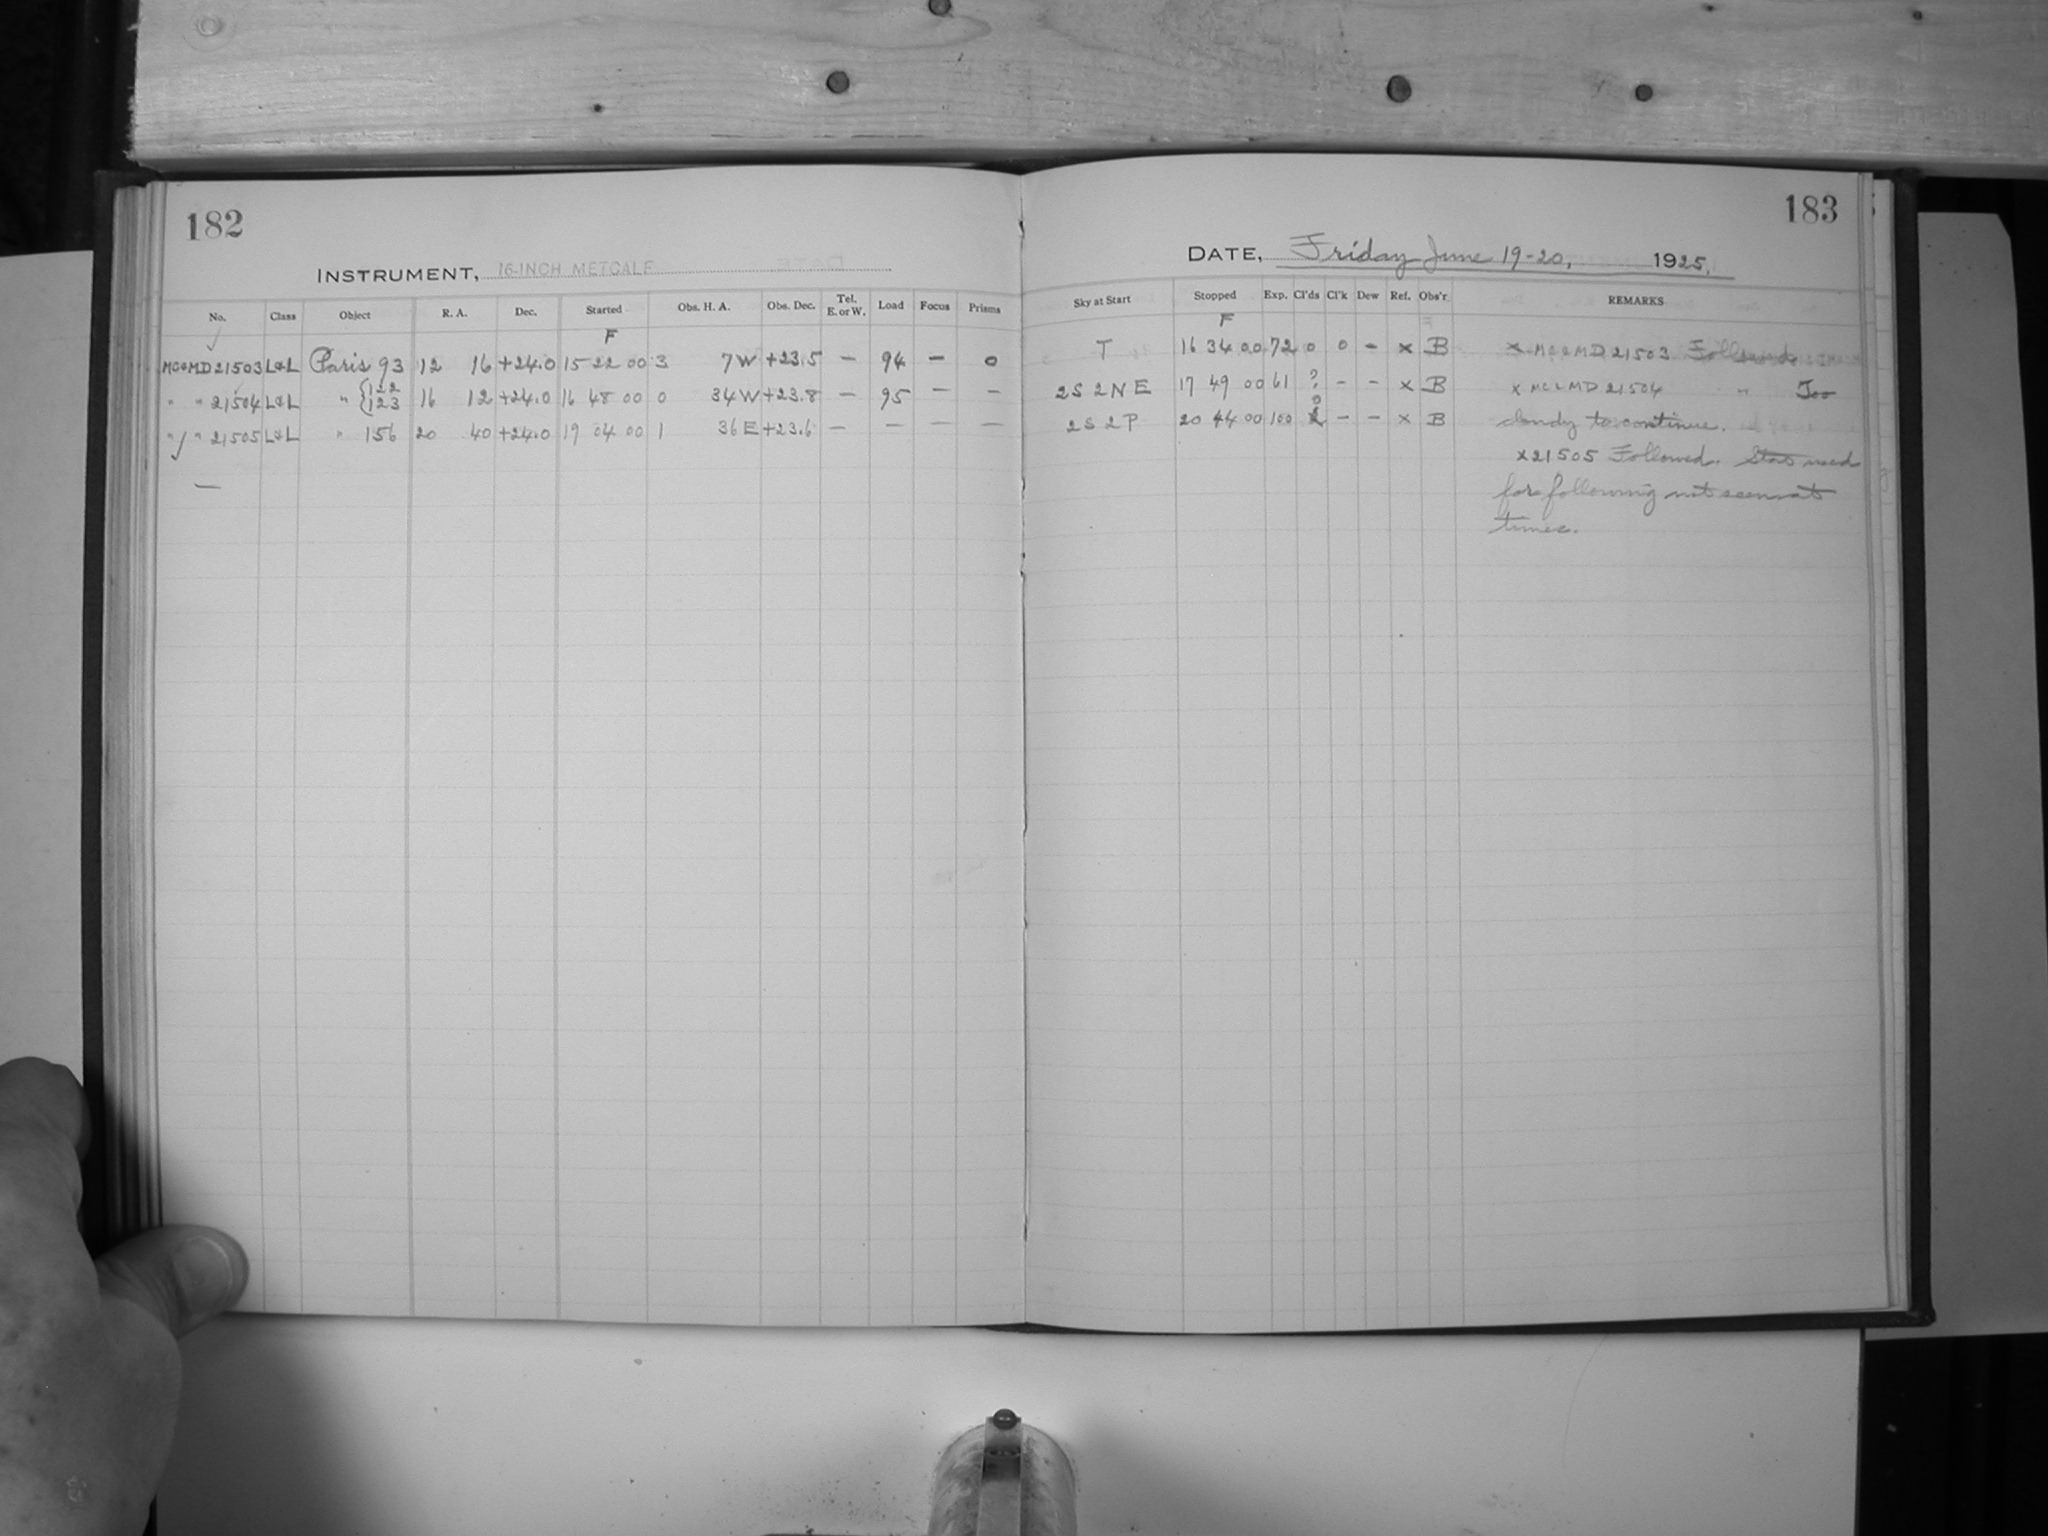 182
INSTRUMENT, 16-INCH METCALF
No. Class Object R. A. Dec. Started Obs. H. A. Obs. Dec. Tel. E. or W. Load Focus Prisms
F
MC&MD21503 L&L Paris 93 12 16 +24.0 15 22 00 3 7W +23.5 – 94 – 0
" " 21504 L&L " {122 123 16 12 +24.0 16 48 00 0 34W +23.8 – 95 – –
" " 21505 L&L " 156 20 40 +24.0 19 04 00 1 36E +23.6 – – – –
–
183
DATE, Friday June 19-20, 1925,
Sky at Start Stopped Exp. Cl'ds Cl'k Dew Ref. Obs'r. REMARKS
F
T 16 34 00 72 0 0 – x B x MC&MD21503 Followed
2S 2NE 17 49 00 61 ? – – x B x MC&MD21504 " Too
2S 2P 20 44 00 100 – – x B cloudy to continue.
x21505 Followed. Star used
for following not seen at
times.